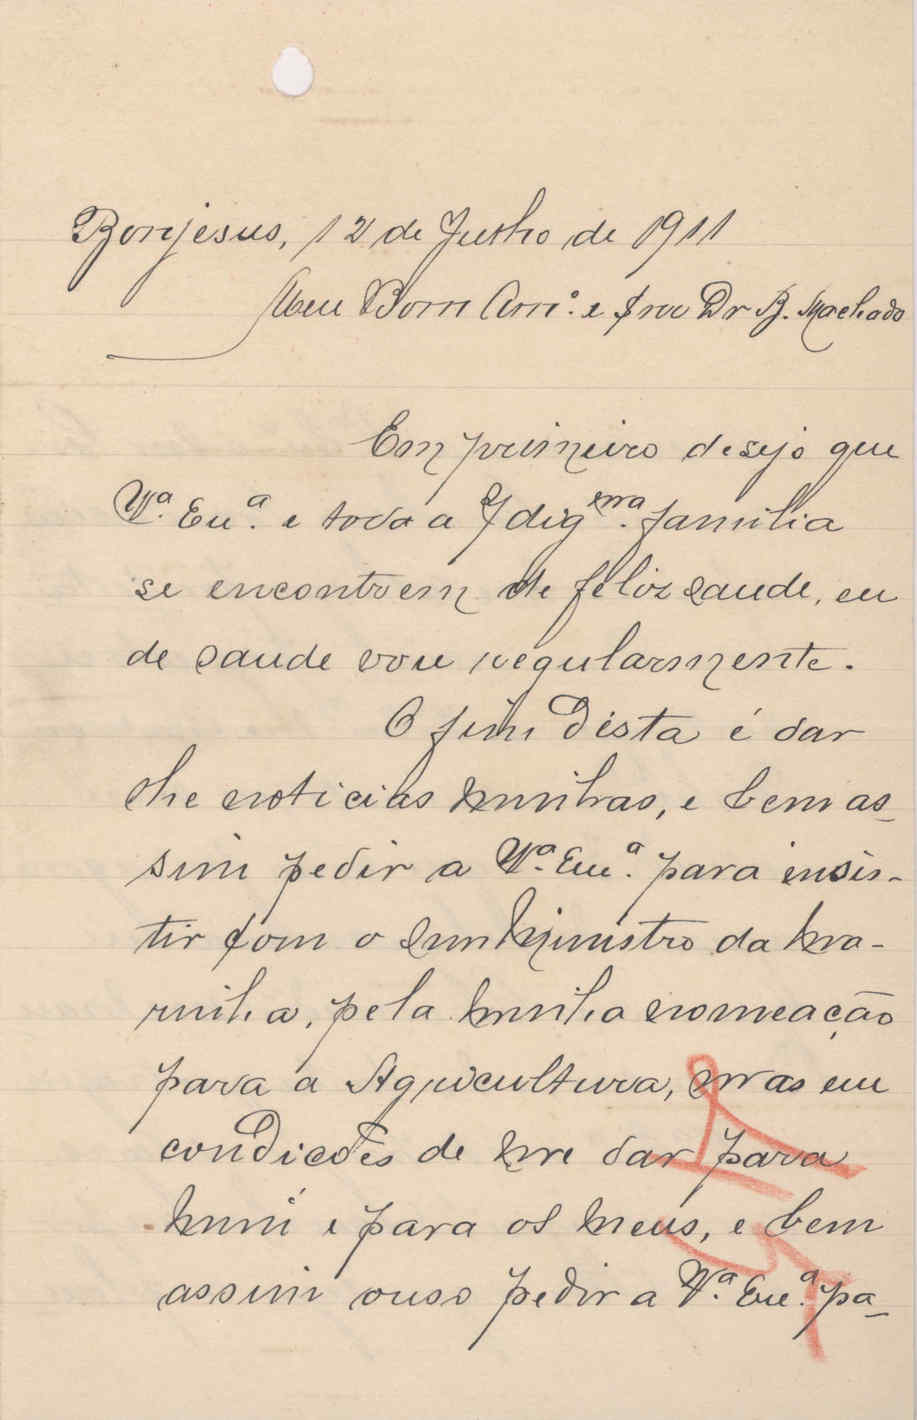 Bonjesus, 12 de Julho de 1911
Meu Bom Am.º e Snr Dr B. Machado
Em primeiro desejo que
V.ª Exe.ª e toda a Idig.ma familia
se encontrem de feliz saude, eu
de saude vou regularmente.
O fim Désta é dar
lhe noticias minhas, e bem as-
sim pedir a V.ª Exe.ª para insis-
tir com o Snr Ministro da Ma-
rinha, pela minha nomeação
para a Agricultura, mas em
condicões de me dar para
mim e para os meus, e bem
assim ouso pedir a V.ª Exe.ª pa-